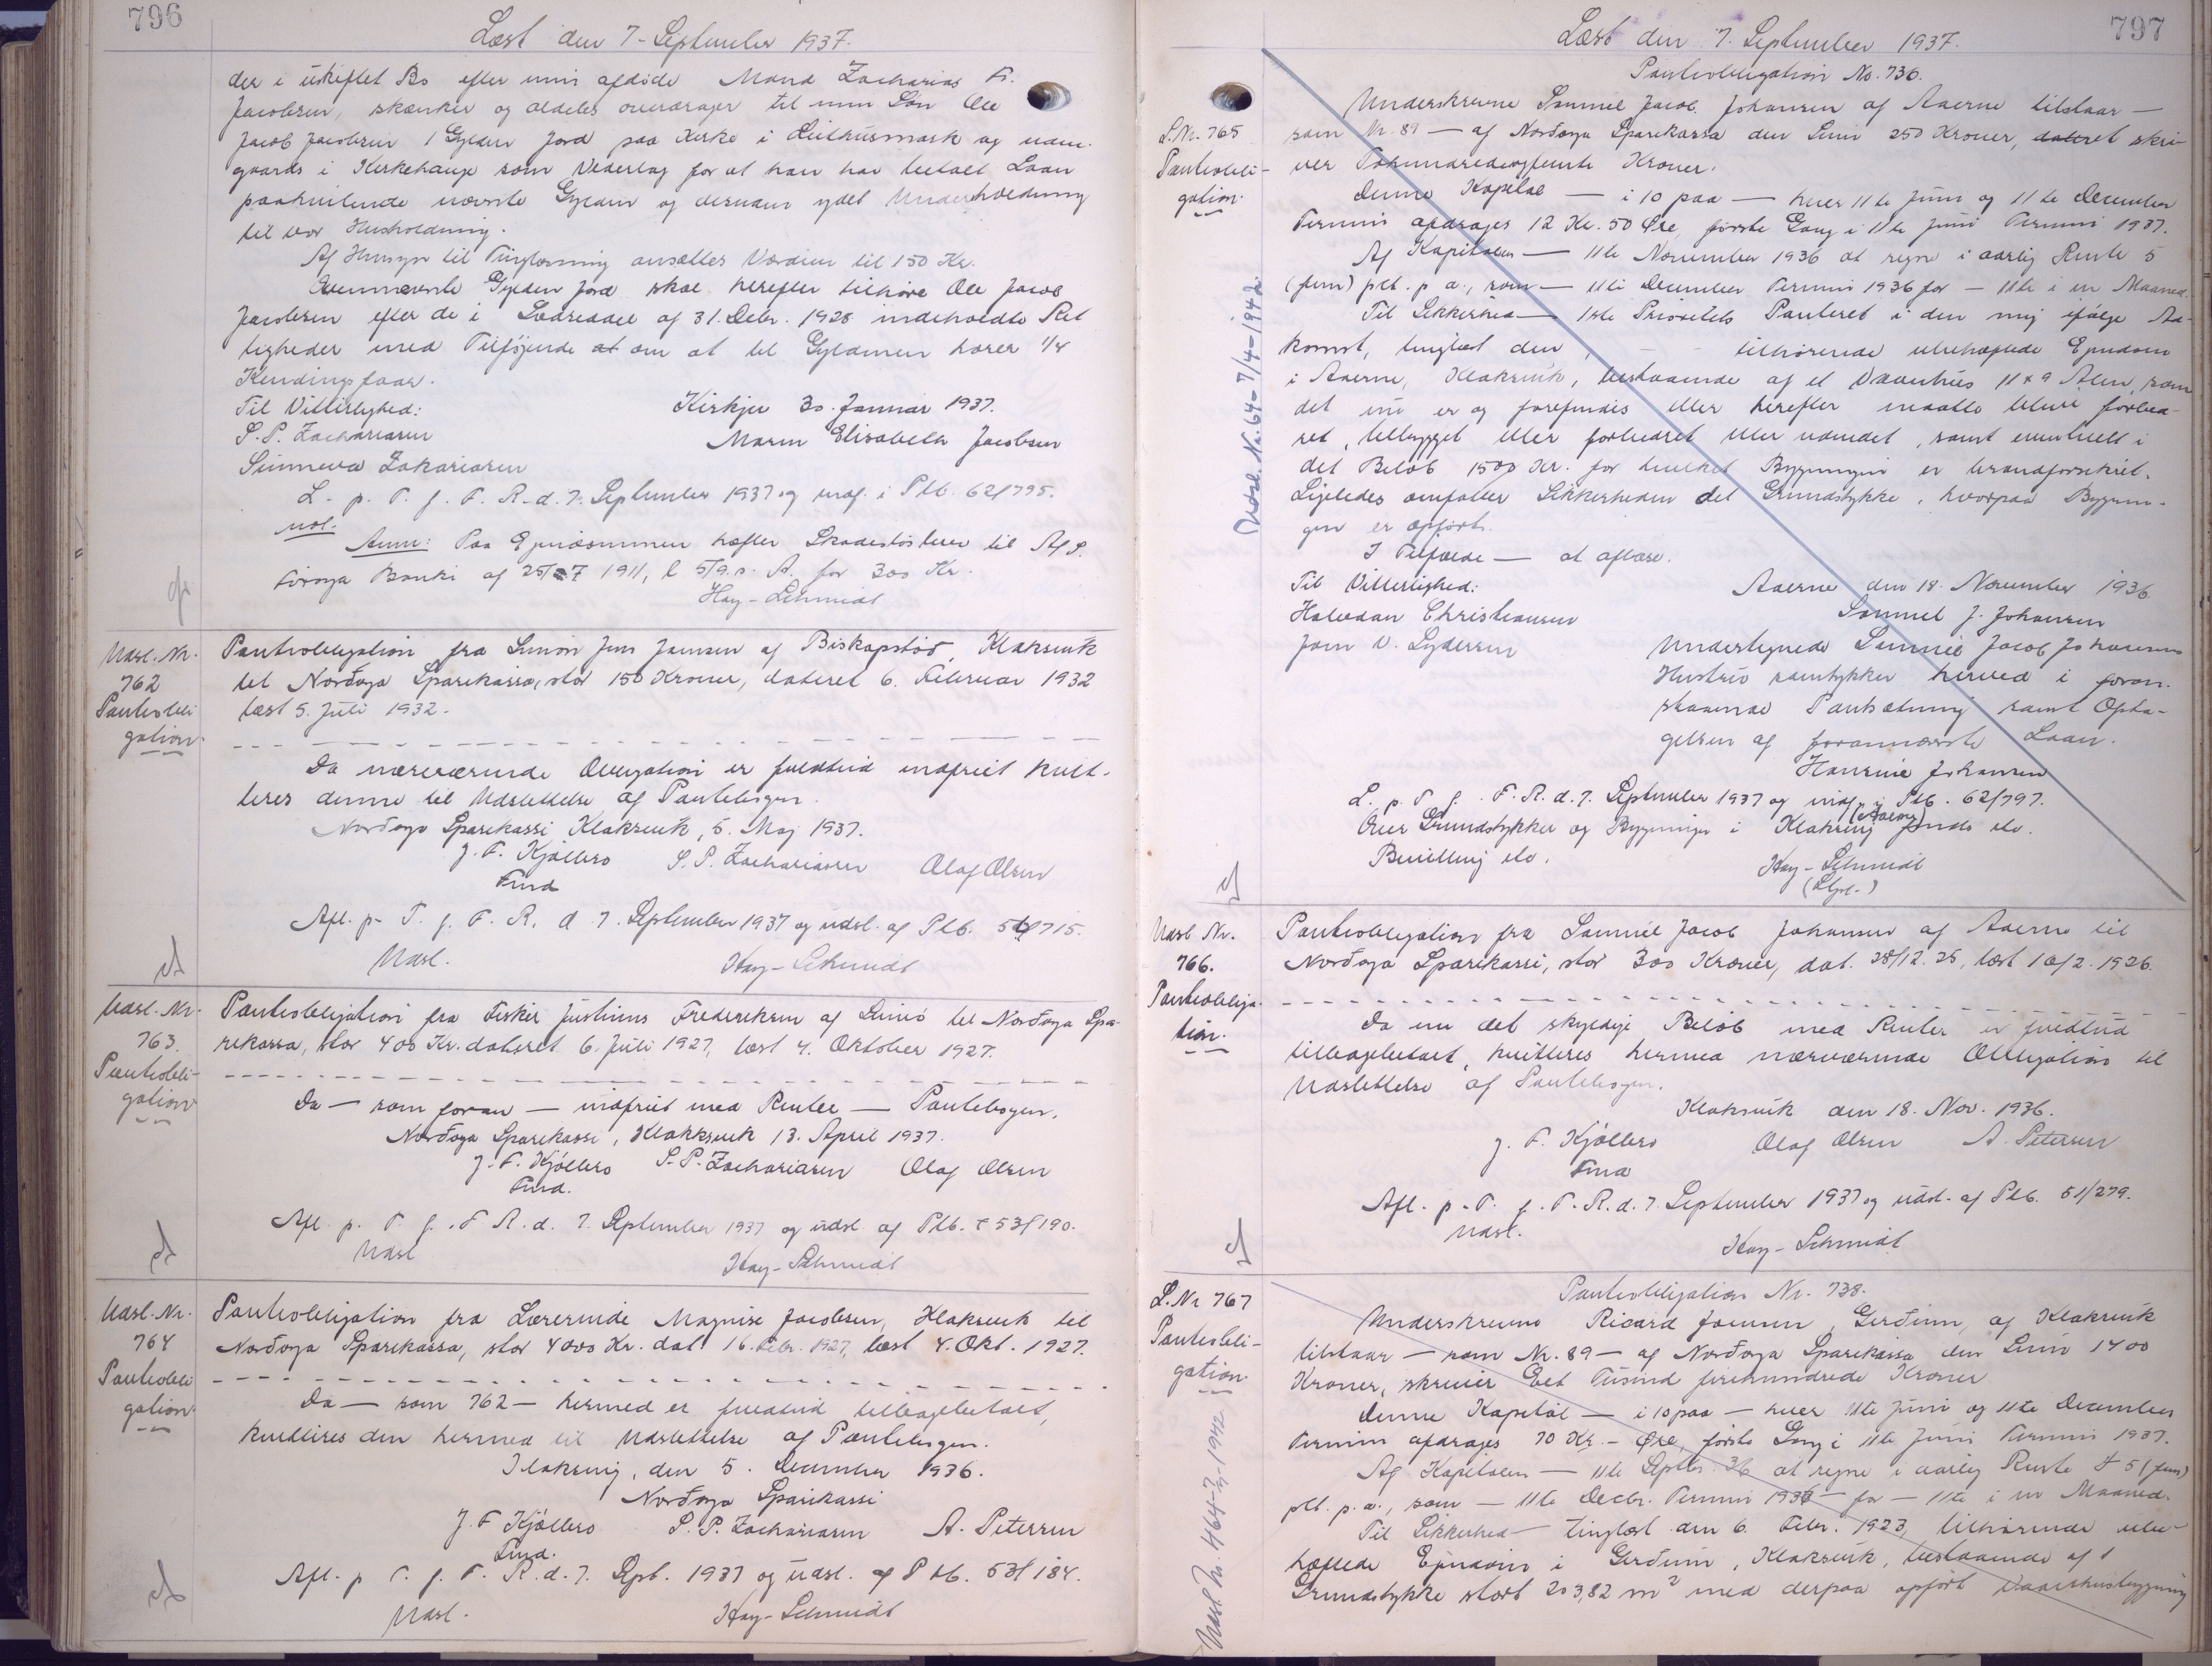 796
Læst den 7. September 1937.
der i uskiftet Bo efter min afdøde Mand Zacharias Fr.
Jacobsen, skænker og aldeles overdrager til min Søn Ole
Jacob Jacobsen 1 Gylden Jord paa Kirke i Suðhusmark og uden-
gaards i Kirkehauge som Vederlag for at han har betalt Laan
paahvilende nævnte Gylden og desuden ydet Underholdning
til vor Husholdning.
Af Hensyn til Tinglæsning ansættes Værdien til 150 Kr.
Ovennævnte Gylden Jord skal herefter tilhøre Ole Jacob
Jacobsen efter de i Lodseddel af 31. Debr. 1928 indeholdte Ret
tigheder med Tilføjende at om at til Gyldenen hører 1/4
Kendingsfaar.
Til Vitterlighed:
Kirkju 30. Januar 1937.
S. P. Zachariasen
Maren Elisabeth Jacobsen
Sunneva Zakariasen
L. p. T. f. F. R. d. 7. September 1937 og indf. i Ptb. 62/795.
Anm: Paa Ejendommen hæfter Skadesløsbrev til A/S.
Føroya Banki af 25/7 1911, l 5/9 s. A. for 300 Kr.
Hay-Schmidt
Udsl. Nr.
762
Pantobli
gation.
Pantobligation fra Simon Jens Jensen af Biskopstøð, Klaksvik
til Norðoya Sparikassa, stor 150 Kroner, dateret 6. Februar 1932
læst 5. Juli 1932.
Da nærværende Obligation er fuldtud indfriet kvit-
teres denne til Udslettelse af Pantebogen.
Norðoya Sparikassi Klaksvik, 5. Maj 1937.
J. F. Kjølbro S. P. Zachariasen Olaf Olsen
Fmd
Afl. p. T. f. F. R. d 7. September 1937 og udsl. af Ptb. 56/715.
Udsl. Hay-Schmidt
Udsl. Nr.
763.
Pantobli-
gation
Pantobligation fra Fisker Justinus Frederiksen af Svinø til Norðoya Spa-
rikassa, stor 400 Kr. dateret 6. Juli 1927, læst 4. Oktober 1927.
Da — som foran — indfriet med Renter — Pantebogen.
Norðoya Sparikassi, Klakksvik 13. April 1937.
J. F. Kjølbro S. P. Zachariasen Olaf Olsen
Fmd.
Afl. p. T. f. F. R. d. 7. September 1937 og udsl. af Ptb. 53/190.
Udsl Hay-Schmidt
Udsl. Nr.
764
Pantobli
gation.
Pantobligation fra Lærerinde Magnise Jacobsen, Klaksvik til
Norðoya Sparikassa, stor 4000 Kr. dat 16. Febr. 1927, læst 4. Okt. 1927.
Da — som 762 — hermed er fuldtud tilbagebetalt,
kvitteres den hermed til Udslettelse af Pantebogen.
Klaksvig, den 5. December 1936.
Norðoya Sparikassi
J. F Kjølbro S. P. Zachariasen A. Petersen
Fmd.
Afl. p T. f. F. R. d. 7. Sept. 1937 og udsl. af Ptb. 53/184.
Udsl. Hay-Schmidt
797
Læst den 7. September 1937.
Pantobligation No. 736.
L. Nr. 765
Pantobli-
gation.
Udsl. Nr. 64 - 7/4 - 1942.
Underskrevne Samuel Jacob Johansen af Aaerne tilstaar —
som Nr. 89 — af Norðoya Sparikassa den Sum 250 Kroner, dateret skri-
ver Tohundredeogfemti Kroner.
Denne Kapital — i 10 paa — hver 11te Juni og 11te December
Termin afdrages 12 Kr. 50 Øre, første Gang i 11te Juni Termin 1937.
Af Kapitalen — 11te November 1936 at regne i aarlig Rente 5
(fem) pCt. p. a., som — 11te December Termin 1936 for — 11te i en Maaned.
Til Sikkerhed — 1ste Prioritets Panteret i den mig ifølge Ad-
komst, tinglæst den , — tilhørende ubehæftede Ejendom
i Aaerne, Klaksvik, bestaaende af et Vaanhus 11 x 9 Alen, som
det nu er og forefindes eller herefter maatte blive forbed-
ret, tilbygget eller forbedret eller udvidet, samt eventuelt i
det Beløb 1500 Kr. for hvilket Bygningen er brandforsikret.
Ligeledes omfatter Sikkerheden det Grundstykke, hvorpaa Bygnin-
gen er opført.
I Tilfælde — at aflæse.
Til Vitterlighed:
Aaerne den 18. November 1936
Halvdan Christiansen
Samuel J. Johansen
Joen D. Lydersen
Undertegnede Samuel Jacob Johansens
Hustru samtykker herved i foran-
staaende Pantsætning samt Opta-
gelsen af forannævnte Laan.
Hansine Johansen
L. p. T f. F. R. d. 7. September 1937 og indf. i Ptb. 62/797.
Over Grundstykker og Bygninger i Klaksvig (Aaerne) findes elv.
Bevilling elv. Hay-Schmidt
Udsl Nr.
766.
Pantobliga-
tion.
Pantobligation fra Samuel Jacob Johansen af Aaerne til
Norðoya Sparikassi, stor 300 Kroner, dat. 28/12. 25, læst 10/2. 1926.
Da nu det skyldige Beløb med Renter er fuldtud
tilbagebetalt, kvitteres hermed nærværende Obligation til
Udslettelse af Pantebogen.
Klaksvik den 18. Nov. 1936.
J. F. Kjølbro Olaf Olsen A. Petersen
Fmd
Afl. p. T. f. F. R. d. 7. September 1937 og udsl. af Ptb. 51/279.
Udsl. Hay-Schmidt
L. Nr 767
Pantobli-
gation.
Pantobligation Nr. 738.
Underskrevne Ricard Joensen, Gerðinn, af Klaksvik
tilstaar — som Nr. 89 — af Norðoya Sparikassa den Sum 1400
Kroner, skriver Eet Tusind firehundrede Kroner
Denne Kapital — i 10 paa — hver 11te Juni og 11te December
Termin afdrages 70 Kr. - Øre, første Gang i 11te Juni Termin 1937.
Af Kapitalen — 11te Septbr. 36 at regne i aarlig Rente 5 (fem)
pCt. p. a., som — 11te Decbr. Termin 1936 for — 11te i en Maaned.
Til Sikkerhed — tinglæst den 6. Febr. 1923, tilhørende ube-
hæftede Ejendom i Gerðinn, Klaksvik, bestaaende af 1
Grundstykke stort 203,82 m² med derpaa opført Vaanhusbygning